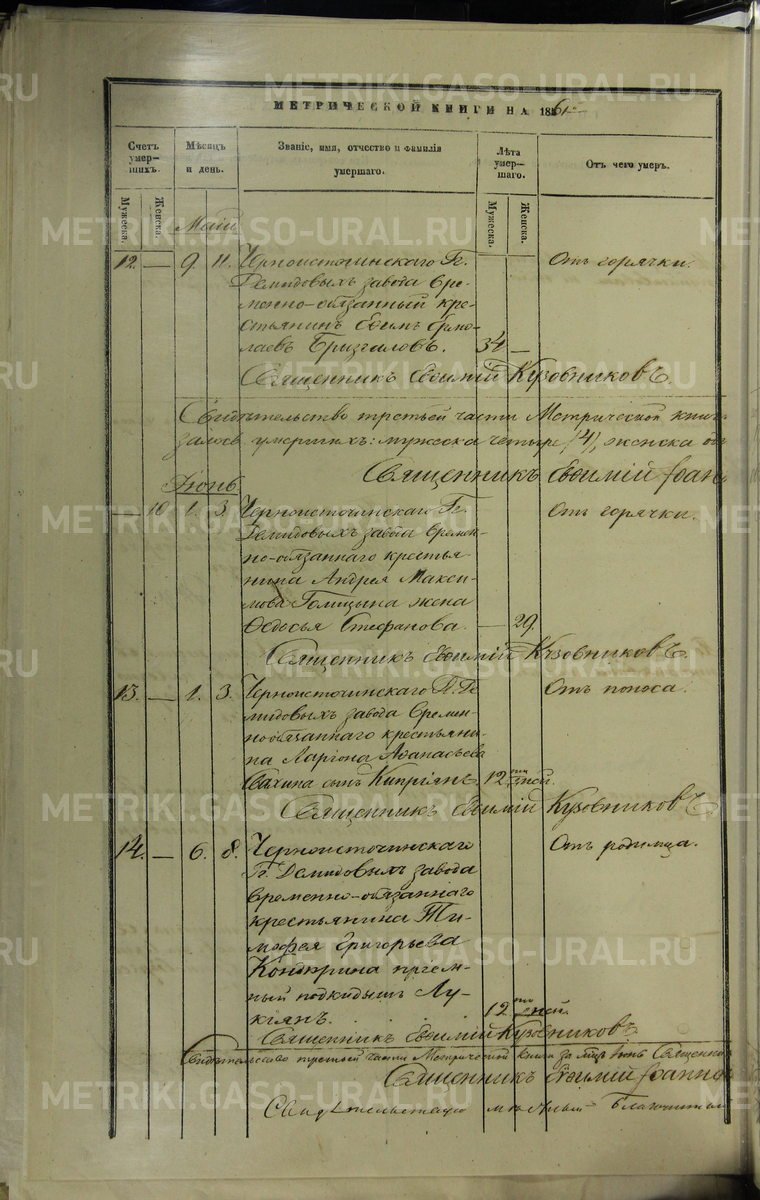 МЕТРИЧЕСКОЙ КНИГИ НА 1861
Счетъ умер-шихъ. Мѣсяцъ и день. Званіе, имя, отчество и фамилія умершаго. Лѣта умер-шаго. Отъ чего умеръ.
Мужеска. Женска. Мужеска. Женска.
Май
12. — 9. 11. Черноисточинскаго Гг. Отъ горячки.
Демидовыхъ завода вре-
менно-обязанный кре-
стьянинъ Евѳимъ Ермо-
лаевъ Бризгаловъ. 34. —
Священникъ Евѳимій Кузовниковъ
Свидѣтельство третьей части Метрической книг
умершихъ: мужеска четыре /4/, женска
Священникъ Евѳимій Іоан
Іюнь
— 10 1. 3. Черноисточинскаго Гг. Отъ горячки.
Демидовыхъ завода времен-
но-обязаннаго крестья-
нина Андрея Макси-
мова Голицына жена
Ѳедосья Стефанова. — 29.
Священникъ Евѳимій Кузовниковъ
13. — 1. 3. Черноисточинскаго Гг. Де Отъ поноса.
мидовыхъ завода времен-
нообязаннаго крестьяни-
на Ларіона Аѳанасьева
сынъ Кипріянъ. 12 ти дней.
Священникъ Евѳимій Кузовниковъ
14. — 6. 8. Черноисточинскаго Отъ родимца.
Гг. Демидовыхъ завода
временно-обязаннаго
крестьянина Ти-
моѳея Григорьева
Кондюрина пріем-
ный подкидышъ Лу-
кіянъ. 12 ти дней.
Священникъ Евѳимій Кузовниковъ
Свидѣтельство третьей части Метрической книги за Іюнь Священни
Священникъ Евѳимій Іоанно
Свидѣтельствую мѣстный Благочинный
METRIKI.GASO-URAL.RU